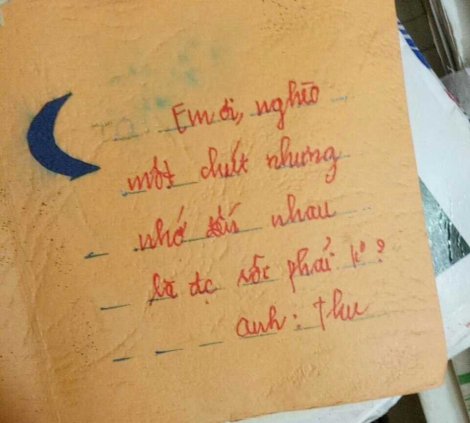 Em ơi, nghèo
một chút nhưng
nhớ đến nhau
là đc rồi phải k?
anh: Thu